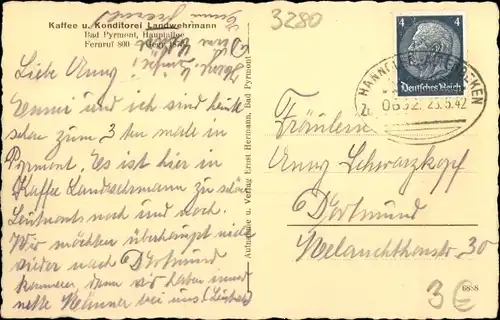 3280
Kaffee u. Konditorei Landwehrmann
Bad Pyrmont, Hauptallee
Fernruf 800
Liebe Anny!
und ich sind heute
schon zum 3 ten male in
Pyrmont. Es ist hier in
Kaffee Landwehrmann zu schön
Leutnants noch und noch.
Wir möchten überhaupt nicht
wieder nach Dortmund
kommen, denn wir haben immer
nette Männer bei uns
Aufnahme u. Verlag Ernst Hermann, Bad Pyrmont
4 4
Deutsches Reich
HANNOVER
0632 23.5.42
Fräulein
Anny Schwarzkopf
Dortmund
Melanchthonstr. 30
6888
3€